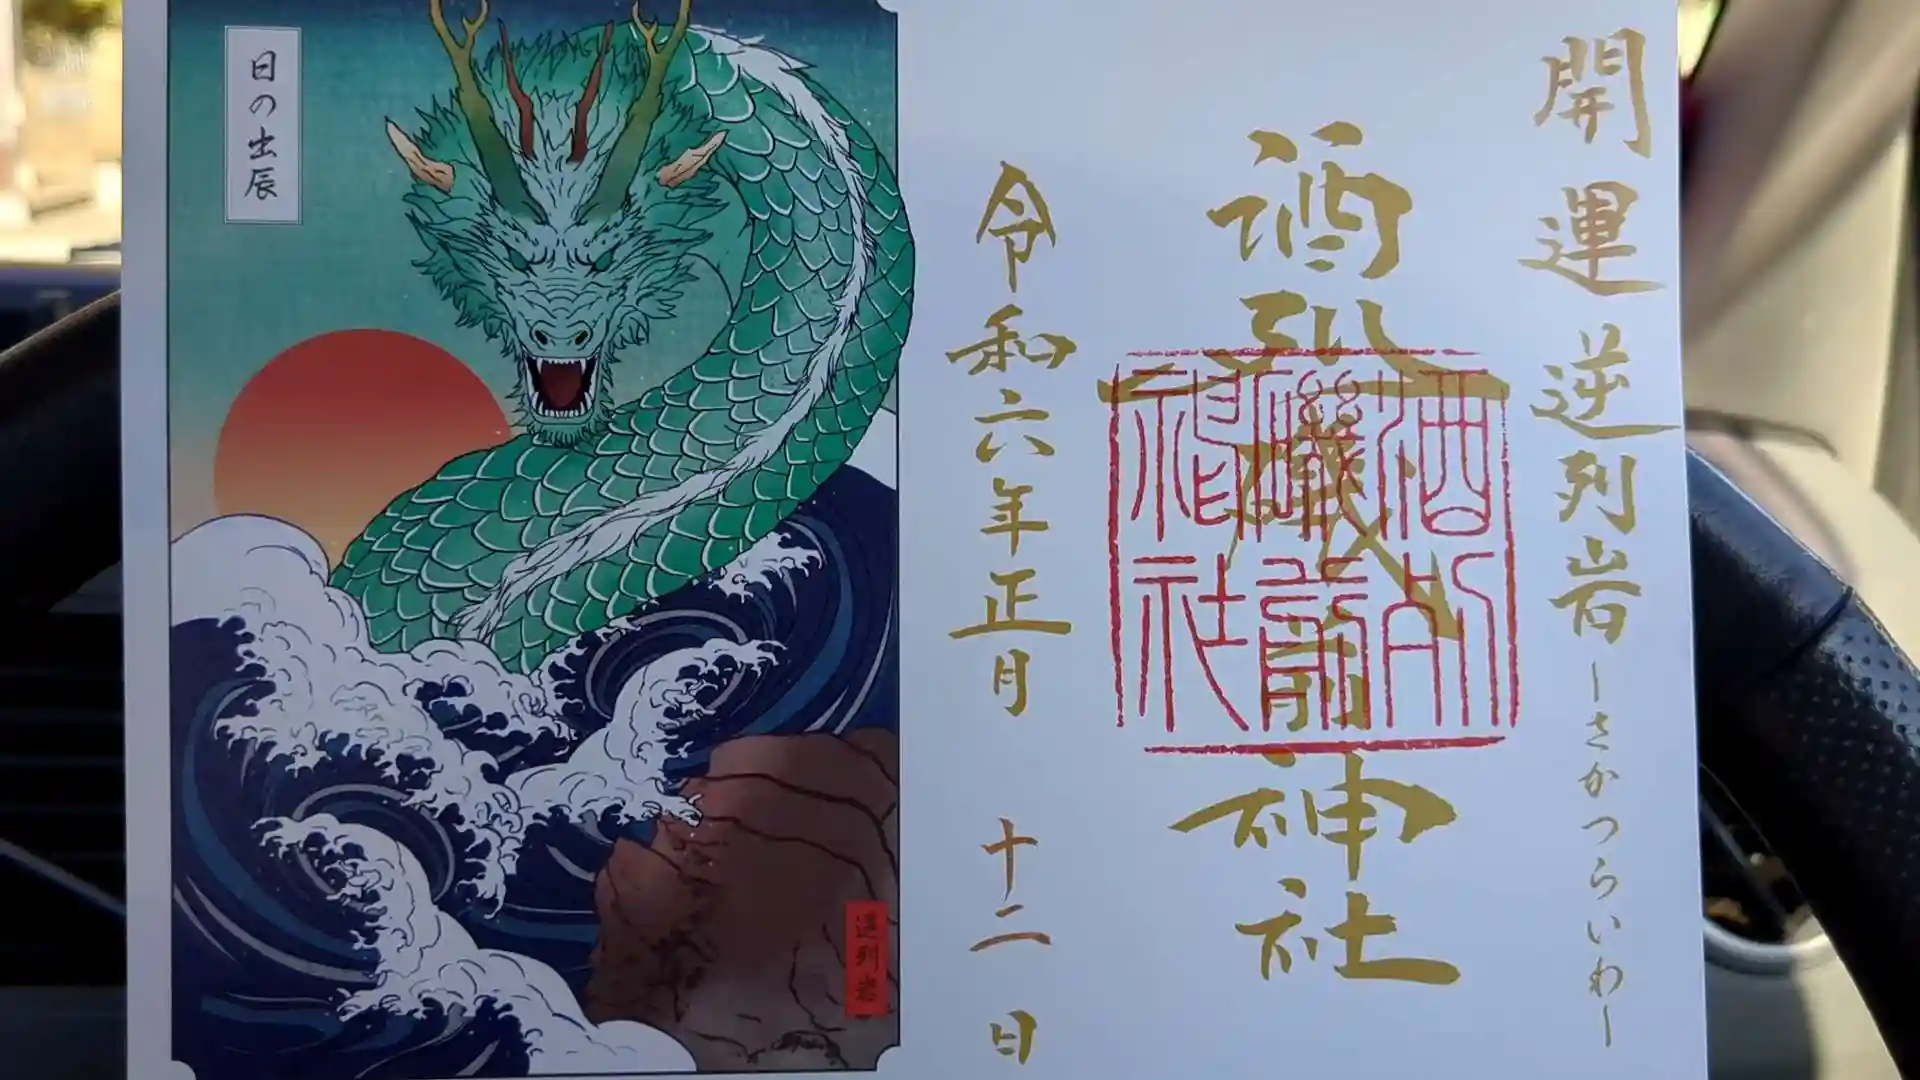 開運逆列岩ーさかつらいわー
酒列磯前神社
酒列
磯前
神社
令和六年正月 十二日
日の出辰
逆列岩